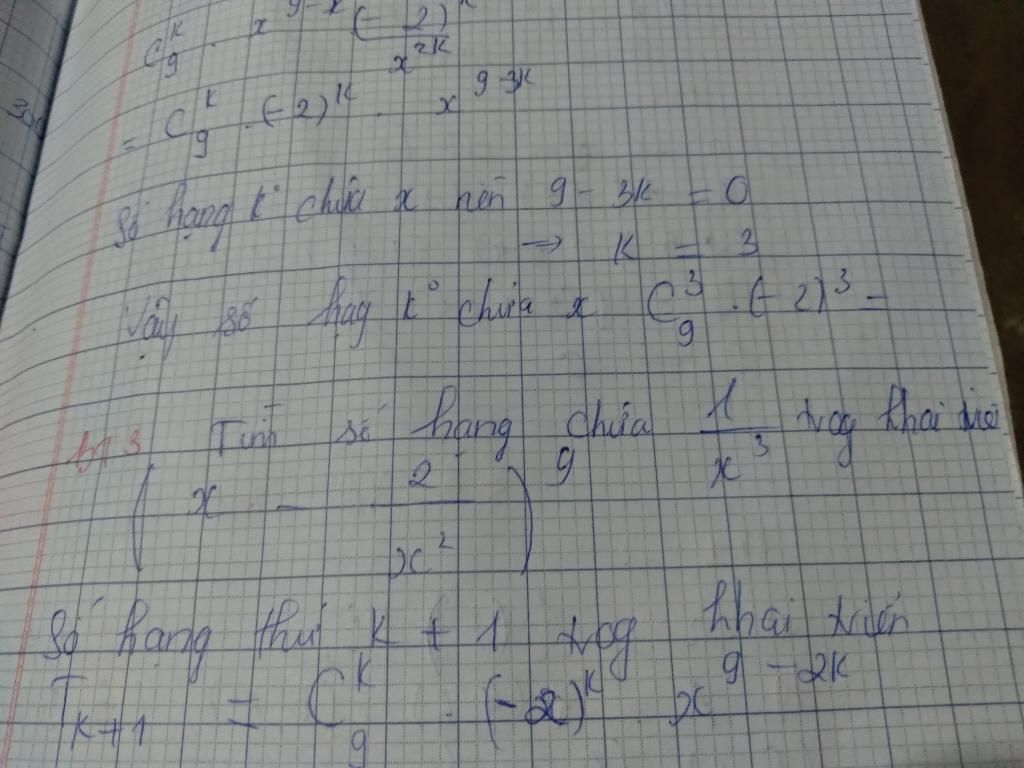 C_9^k . x^{9-k} (-2)^k / x^{2k}
= C_9^k . (-2)^k . x^{9-3k}
Số hạng k° chứa x nên 9 - 3k = 0
=> k = 3
Vậy số hag k° chứa x C_9^3 . (-2)^3 =
BT3 Tính số hạng chứa 1/x^3 trog khai triể
(x - 2/x^2)^9
Số hang thứ k + 1 trog khai triển
T_{k+1} = C_9^k . (-2)^k x^{9-2k}